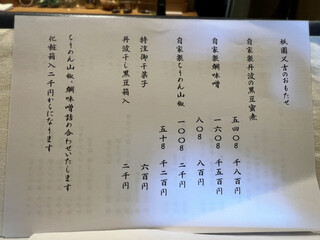 祇園又吉のおもたせ
自家製丹波の黒豆蜜煮
五四〇g 千八百円
一六〇g 千五百円
自家製鯛味噌
八〇g 八百円
自家製ちりめん山椒
一〇〇g 千二百円
五十g 六百円
特注御干菓子
二千円
丹波干し黒豆箱入
二千円
ちりめん山椒、鯛味噌詰め合わせいたします
化粧箱入二千円からになります